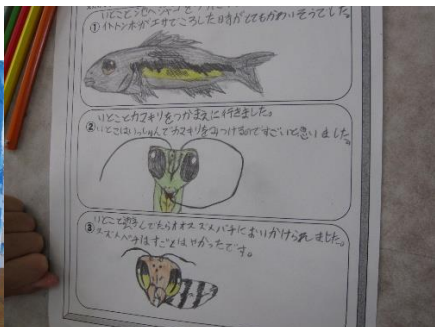 ①イトトンボがエサでころした時がとてもかわいそうでした。
いとことカマキリをつかまえに行きました。
②いとこはいっしゅんでカマキリをみつけるのですごいと思いました。
いとこと遊んでたらオオスズメバチにおいかけられました。
③スズメバチはすごくはやかったです。